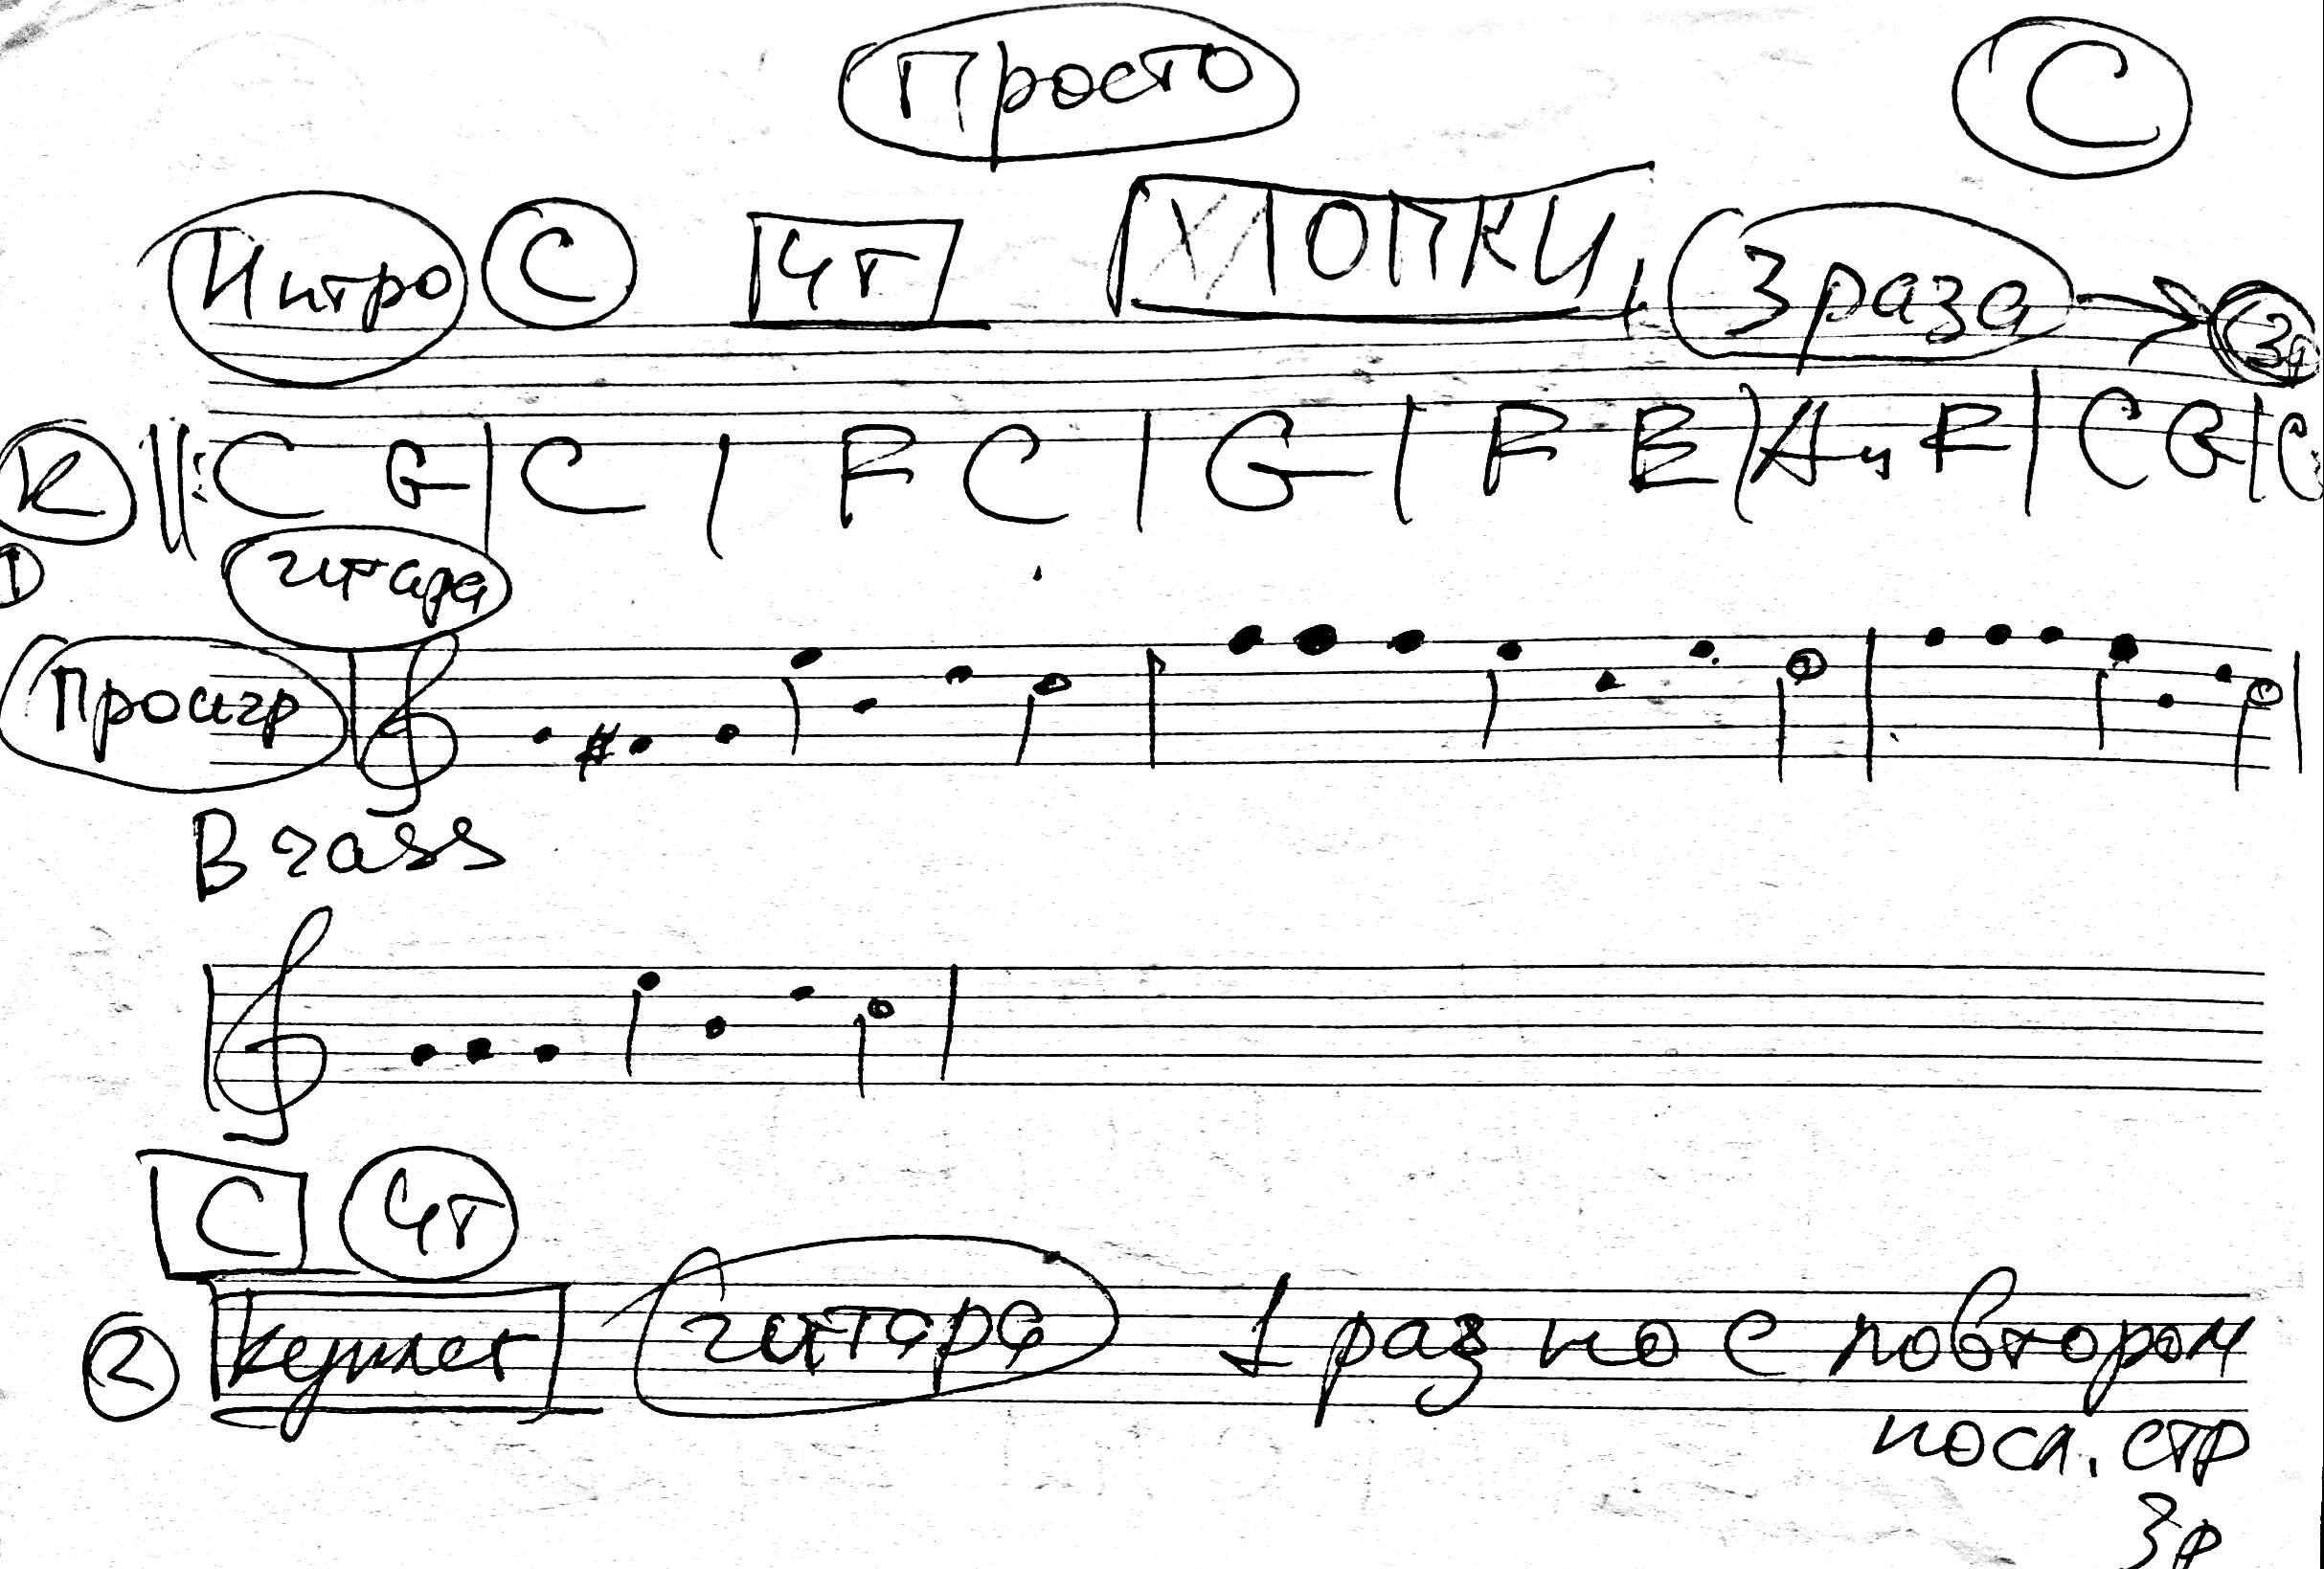 Просто C
Интро C 4т ХЛОПКИ 3 раза → 3р
K ‖: C G | C | F C | G | F E | Am F | C G | C
1 гитара
Проигр
Brass
C 4т
2 куплет гитара 1 раз но с повтором
посл. стр
3р